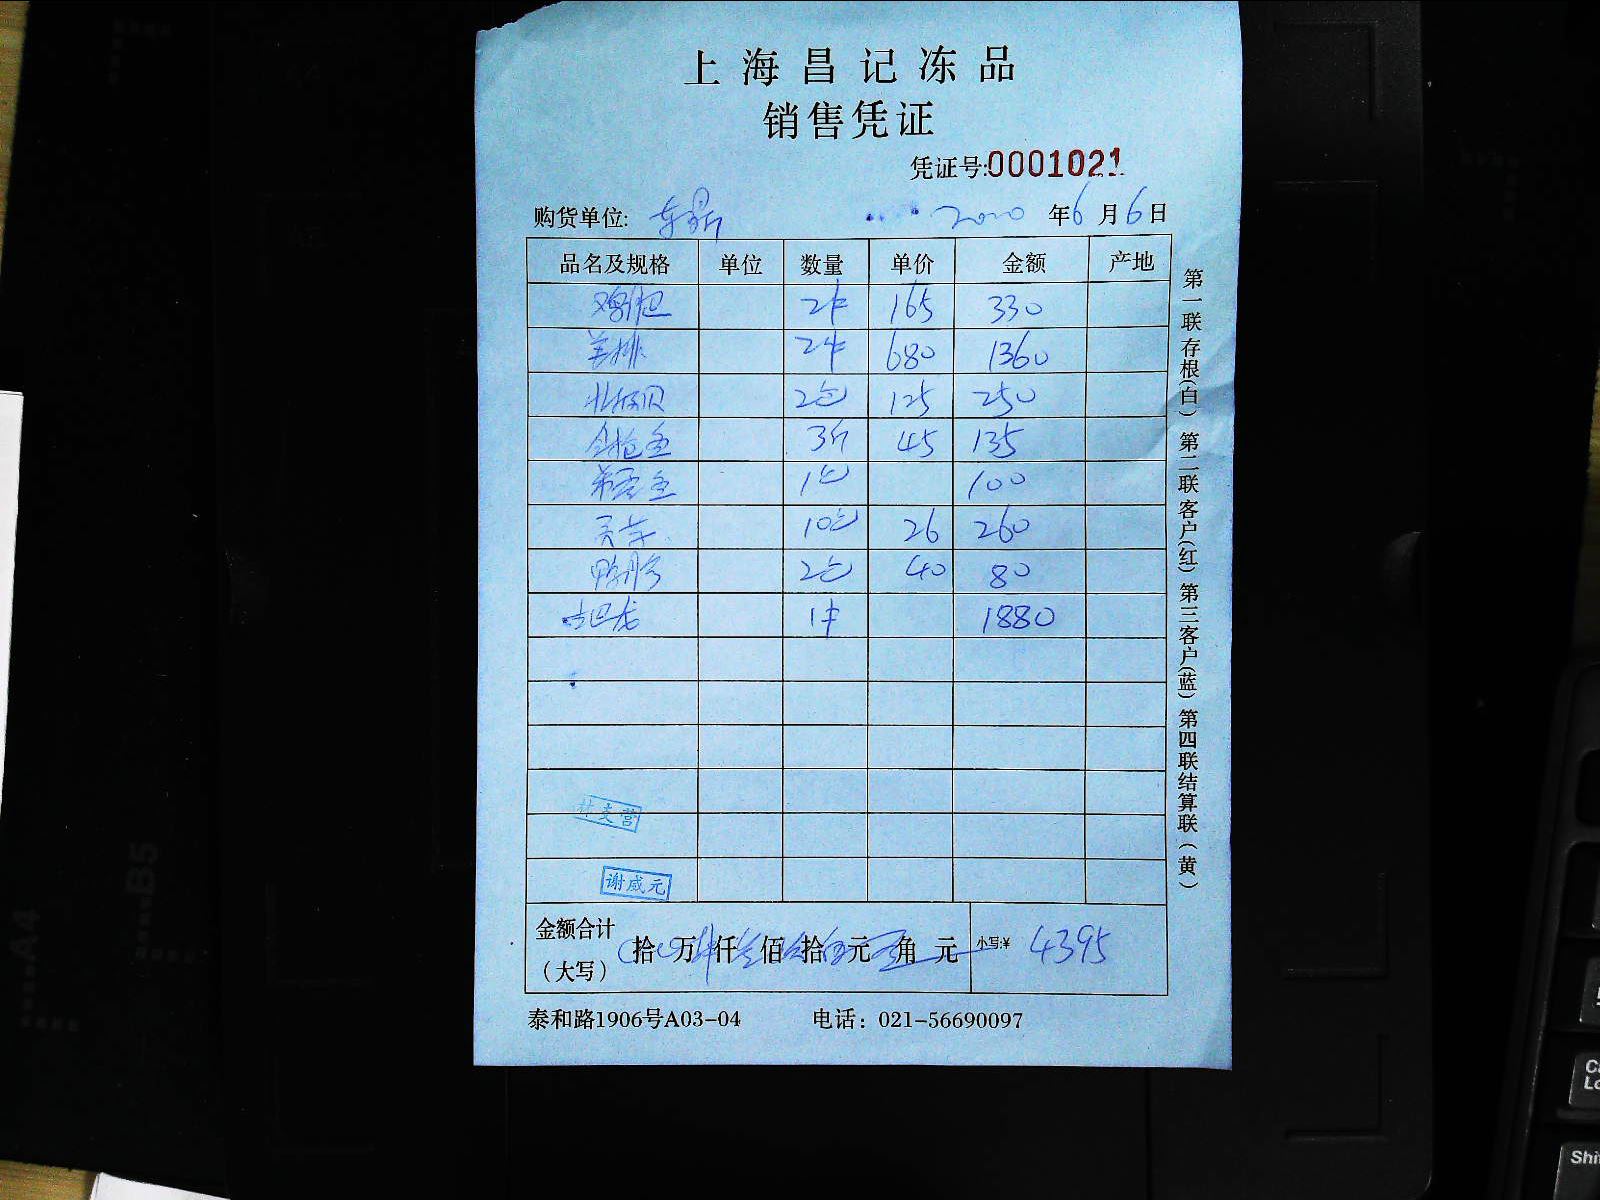 上海昌记冻品
销售凭证
凭证号:0001021
购货单位: 2020 年 6 月 6 日
品名及规格 单位 数量 单价 金额 产地
2件 165 330
羊排 2件 680 1360
北极贝 2包 125 250
金枪鱼 3斤 45 135
1包 100
10包 26 260
2包 40 80
1件 1880
林支营
谢威元
金额合计（大写） 拾 万 仟 佰 拾 元 角 元 小写:¥ 4395
泰和路1906号A03-04 电话：021-56690097
第一联存根(白) 第二联客户(红) 第三客户(蓝) 第四联结算联(黄)
A4
B5
Shi